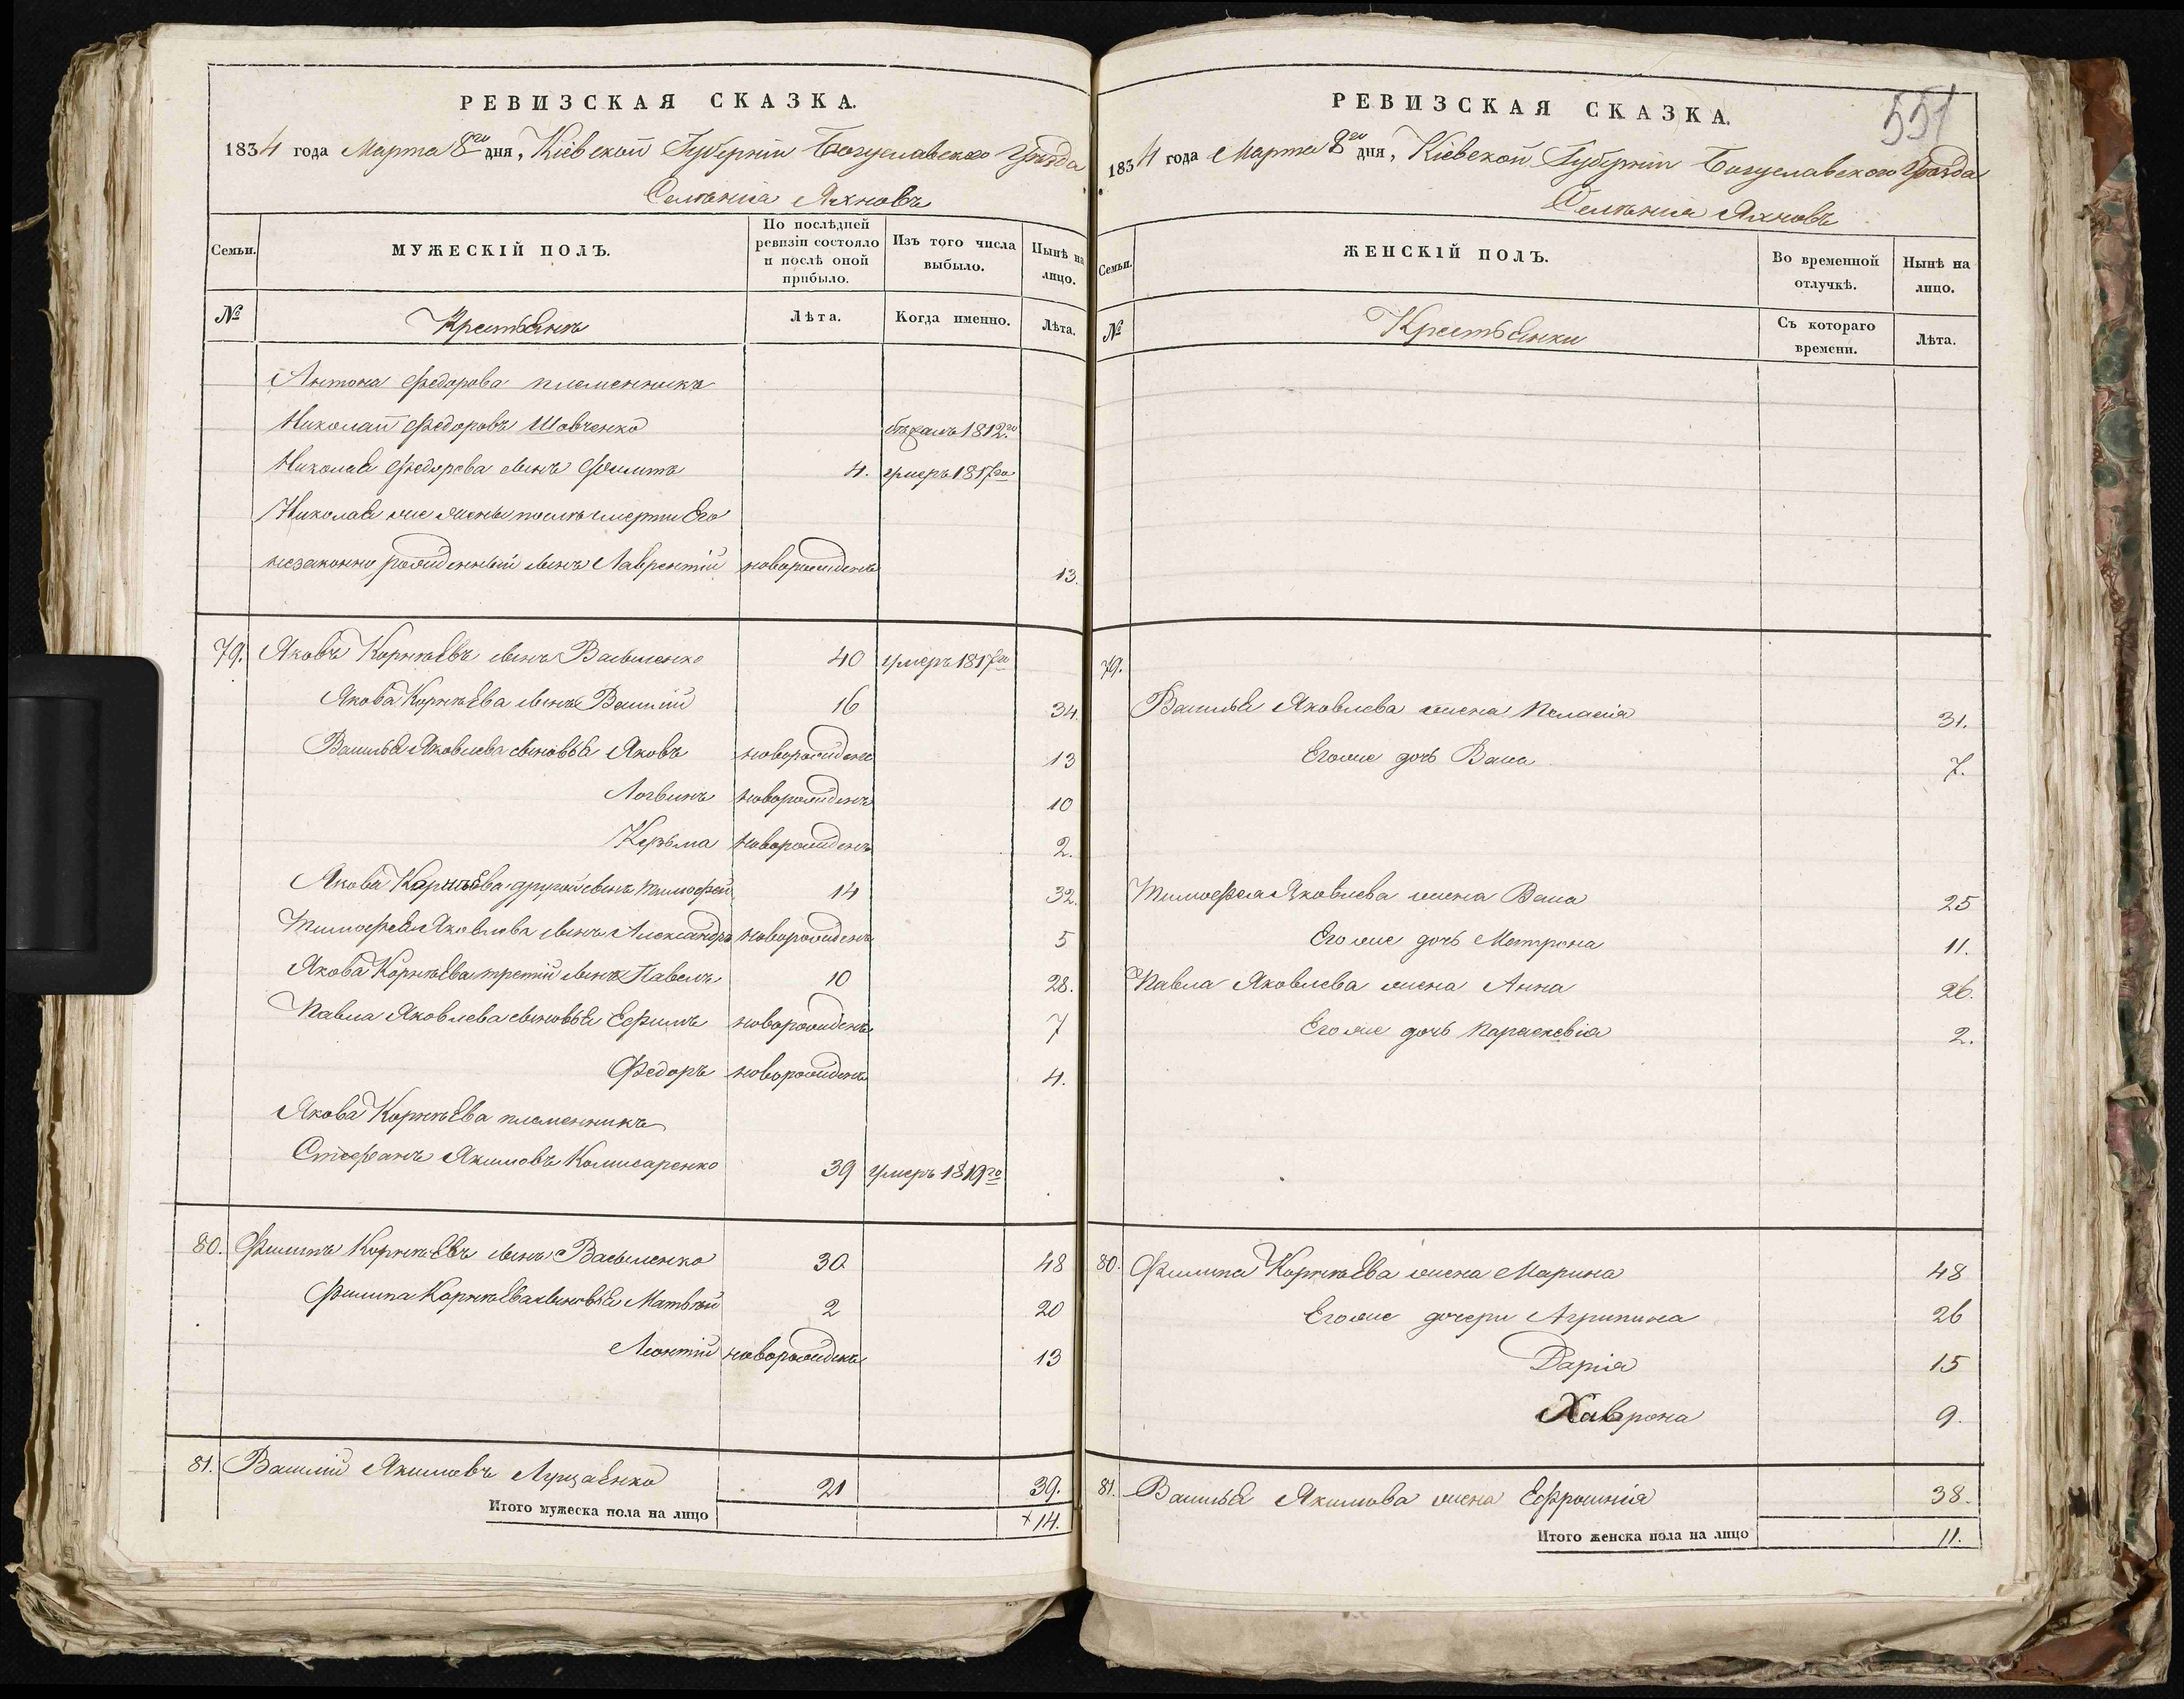 РЕВИЗСКАЯ СКАЗКА.
1834 года Марта 8го дня, Кіевской Губерніи Богуславского Уѣзда
Селенія Яхновъ
Семьи.
МУЖЕСКІЙ ПОЛЪ.
По послѣдней ревизіи состояло и послѣ оной прибыло.
Изъ того числа выбыло.
Нынѣ на лицо.
№
Крестьянъ
Лѣта.
Когда именно.
Лѣта.
Антона Федорова племенникъ
Николай Федоровъ Шовченко бѣжалъ 1812го
Николая Федорова сынъ Филипъ 4. умеръ 1817го
Николая же жены послѣ смерти Его
незаконно рожденный сынъ Лаврентій новорожденъ 13.
79. Яковъ Корнѣевъ сынъ Васыленко 40 умеръ 1817го
Якова Корнѣева сынъ Василій 16 34.
Василья Яковлева сыновья Яковъ новорожденъ 13
Логвинъ новорожденъ 10
Козьма новорожденъ 2.
Якова Корнѣева другой сынъ Тимофей 14 32.
Тимофея Яковлева сынъ Александръ новорожденъ 5
Якова Корнѣева третій сынъ Павелъ 10 28.
Павла Яковлева сыновья Ефимъ новорожденъ 7
Федоръ новорожденъ 4.
Якова Корнѣева племенникъ
Стефанъ Якимовъ Комисаренко 39 умеръ 1819го
80. Филипъ Корнѣевъ сынъ Васыленко 30 48
Филипа Корнѣева сыновья Матвѣй 2 20
Леонтій новорожденъ 13
81. Василій Якимовъ Луцаенко 21 39.
Итого мужеска пола на лицо 14.
551
РЕВИЗСКАЯ СКАЗКА.
1834 года Марта 8го дня, Кіевской Губерніи Богуславского Уѣзда
Селенія Яхновъ
Семьи.
ЖЕНСКІЙ ПОЛЪ.
Во временной отлучкѣ.
Нынѣ на лицо.
№
Крестьянки
Съ котораго времени.
Лѣта.
79.
Василья Яковлева жена Пелагія 31.
Егоже дочь Васа 7.
Тимофея Яковлева жена Васа 25
Егоже дочь Матрона 11.
Павла Яковлева жена Анна 26.
Егоже дочь Параскевія 2.
80. Филипа Корнѣева жена Марина 48
Егоже дочери Агрипина 26
Дарія 15
Хаврона 9.
81. Василья Якимова жена Ефросинія 38.
Итого женска пола на лицо 11.